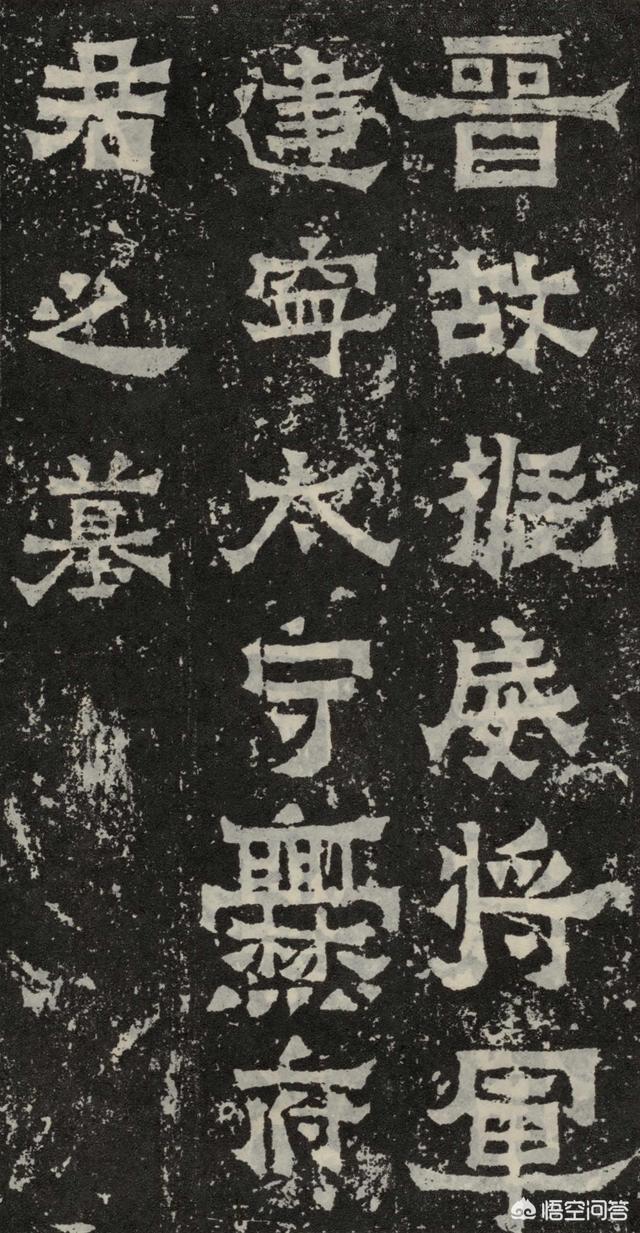 晉故振威將軍
建寧太守爨府
君之墓
悟空问答